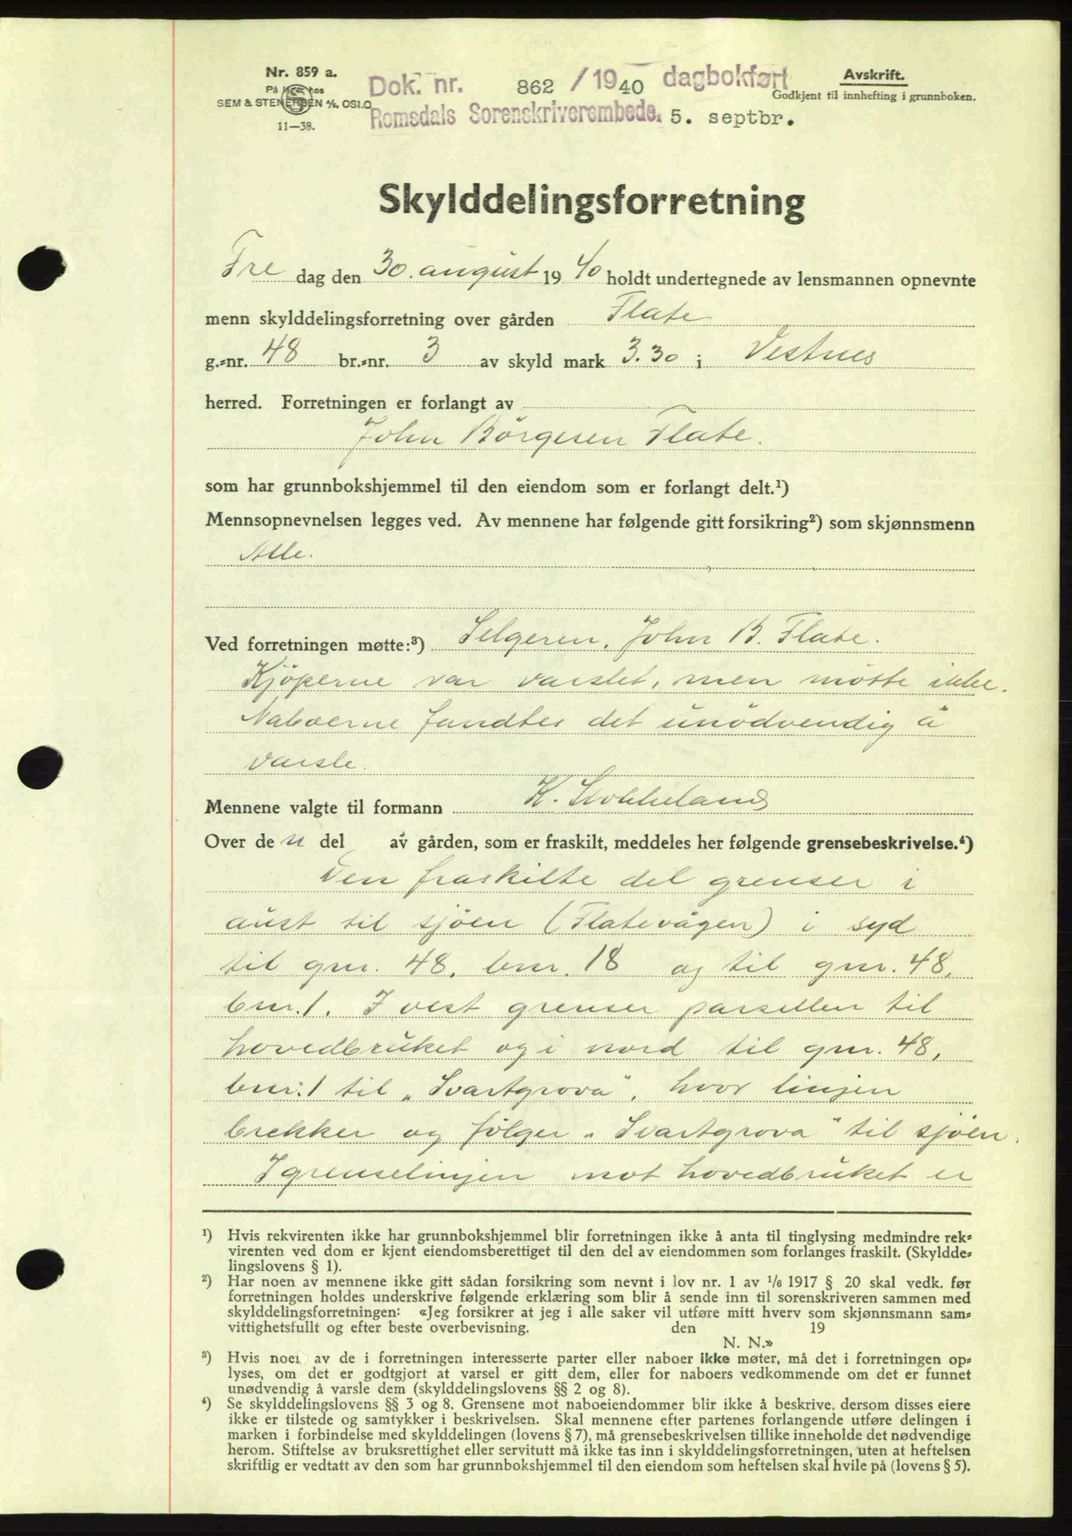 Nr. 859 a.
På lager hos
SEM & STENERSEN A/S, OSLO
11—38.
Dok. nr. 862 / 1940 dagbokført
Romsdals Sorenskriverembede. 5. septbr.
Avskrift.
Godkjent til innhefting i grunnboken.
Skylddelingsforretning
Fre dag den 30. august 19 40 holdt undertegnede av lensmannen opnevnte
menn skylddelingsforretning over gården Flate
g.-nr. 48 br.-nr. 3 av skyld mark 3.30 i Vestnes
herred. Forretningen er forlangt av
John Börgesen Flate.
som har grunnbokshjemmel til den eiendom som er forlangt delt.¹)
Mennsopnevnelsen legges ved. Av mennene har følgende gitt forsikring²) som skjønnsmenn
Alle.
Ved forretningen møtte:³) Selgeren, John B. Flate.
Kjöperne var varslet, men mötte ikke.
Naboerne fandtes det unödvendig å
varsle.
Mennene valgte til formann K. Stokkeland
Over de n del av gården, som er fraskilt, meddeles her følgende grensebeskrivelse.⁴)
Den fraskilte del grenser i
aust til sjöen (Flatevågen) i syd
til gnr. 48, bnr. 18 og til gnr. 48,
bnr. 1. I vest grenser parsellen til
hovedbruket og i nord til gnr. 48,
bnr. 1 til „Svartgrova", hvor linjen
brekker og fölger „Svartgrova" til sjöen.
I grenselinjen mot hovedbruket er
¹) Hvis rekvirenten ikke har grunnbokshjemmel blir forretningen ikke å anta til tinglysing medmindre rek-
virenten ved dom er kjent eiendomsberettiget til den del av eiendommen som forlanges fraskilt. (Skyldde-
lingslovens § 1).
²) Har noen av mennene ikke gitt sådan forsikring som nevnt i lov nr. 1 av ¹/₆ 1917 § 20 skal vedk. før
forretningen holdes underskrive følgende erklæring som blir å sende inn til sorenskriveren sammen med
skylddelingsforretningen: «Jeg forsikrer at jeg i alle saker vil utføre mitt hverv som skjønnsmann sam-
vittighetsfullt og efter beste overbevisning. den 19
N. N.»
³) Hvis noen av de i forretningen interesserte parter eller naboer ikke møter, må det i forretningen op-
lyses, om det er godtgjort at varsel er gitt dem, eller for naboers vedkommende om det er funnet
unødvendig å varsle dem (skylddelingslovens §§ 2 og 8).
⁴) Se skylddelingslovens §§ 3 og 8. Grensene mot naboeiendommer blir ikke å beskrive, dersom disses eiere
ikke er tilstede og samtykker i beskrivelsen. Skal mennene efter partenes forlangende utføre delingen i
marken i forbindelse med skylddelingen (lovens § 7), må grensebeskrivelsen tillike inneholde det nødvendige
herom. Stiftelse av bruksrettighet eller servitutt må ikke tas inn i skylddelingsforretningen, uten at heftelsen
skriftlig er vedtatt av den som har grunnbokshjemmel til den eiendom som heftelsen skal hvile på (lovens § 5).